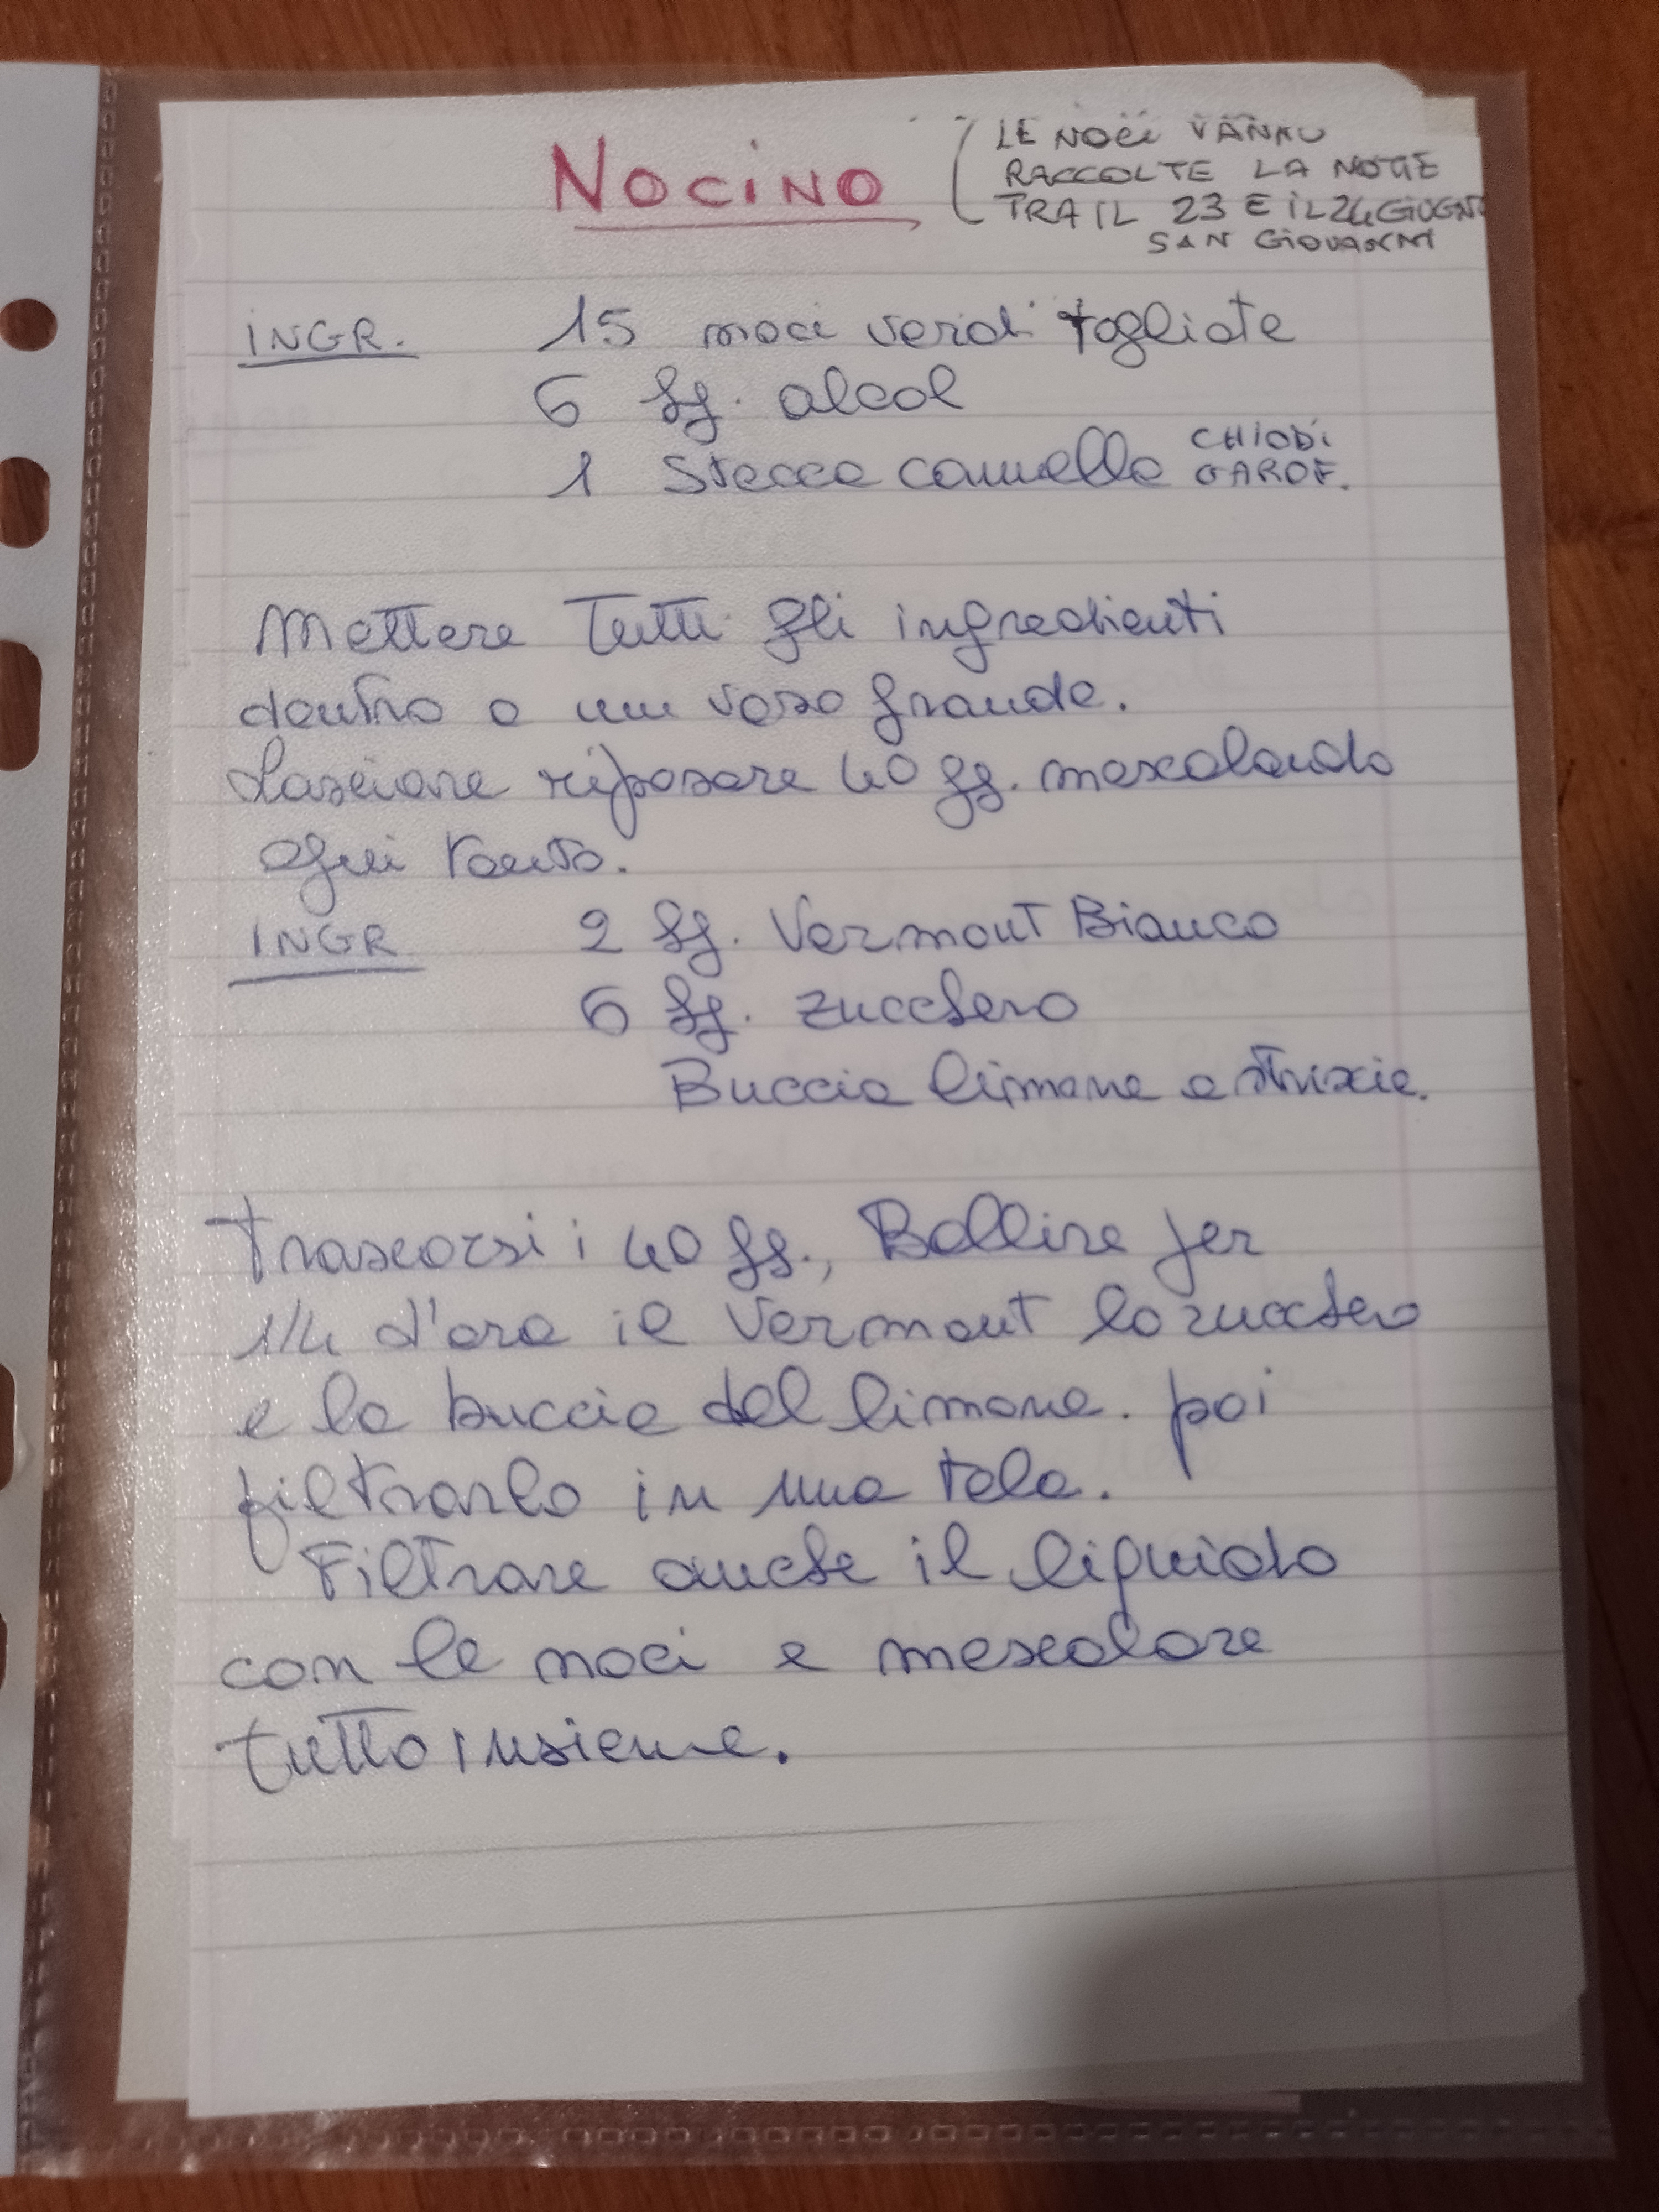 NOCINO
(LE NOCI VANNO
RACCOLTE LA NOTTE
TRA IL 23 E IL 24 GIUGNO
SAN GIOVANNI
INGR. 15 noci verdi tagliate
6 hg. alcol
1 stecca cannella CHIODI
GAROF.
Mettere tutti gli ingredienti
dentro a un vaso grande.
Lasciare riposare 40 gg. mescolando
ogni tanto.
INGR 2 hg. Vermout Bianco
6 hg. zucchero
Buccia limone a striscie.
Trascorsi i 40 gg., Bollire per
1/4 d'ora il Vermout lo zucchero
e la buccia del limone. poi
filtrarlo in una tela.
Filtrare anche il liquido
con le noci e mescolare
tutto insieme.